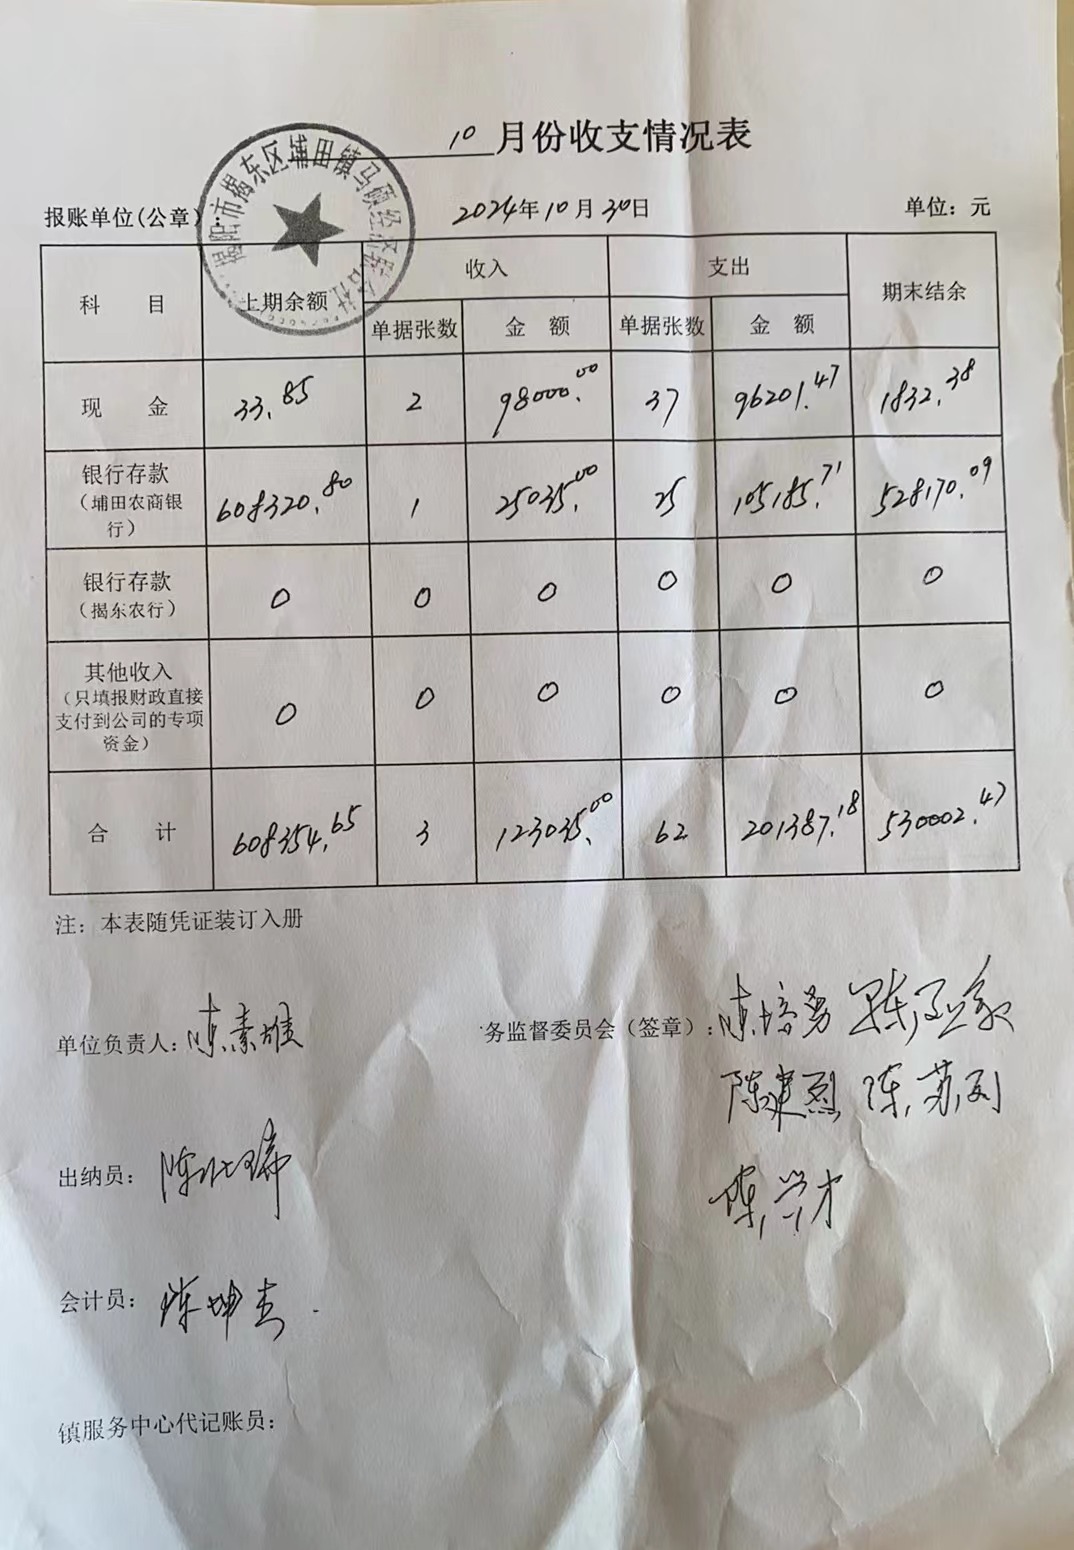 10 月份收支情况表
揭阳市揭东区埔田镇马硕经济联合社
报账单位(公章) 2024年10月30日 单位：元
科 目 上期余额 收入 支出 期末结余
单据张数 金 额 单据张数 金 额
现 金 33.85 2 98000.00 37 96201.47 1832.38
银行存款（埔田农商银行） 608320.80 1 25035.00 25 105185.71 528170.09
银行存款（揭东农行） 0 0 0 0 0 0
其他收入（只填报财政直接支付到公司的专项资金） 0 0 0 0 0 0
合 计 608354.65 3 123035.00 62 201387.18 530002.47
注：本表随凭证装订入册
单位负责人：陈素雄 务监督委员会（签章）：陈培勇
陈建烈 陈苏列
出纳员： 陈
陈学才
会计员： 陈坤杰
镇服务中心代记账员：